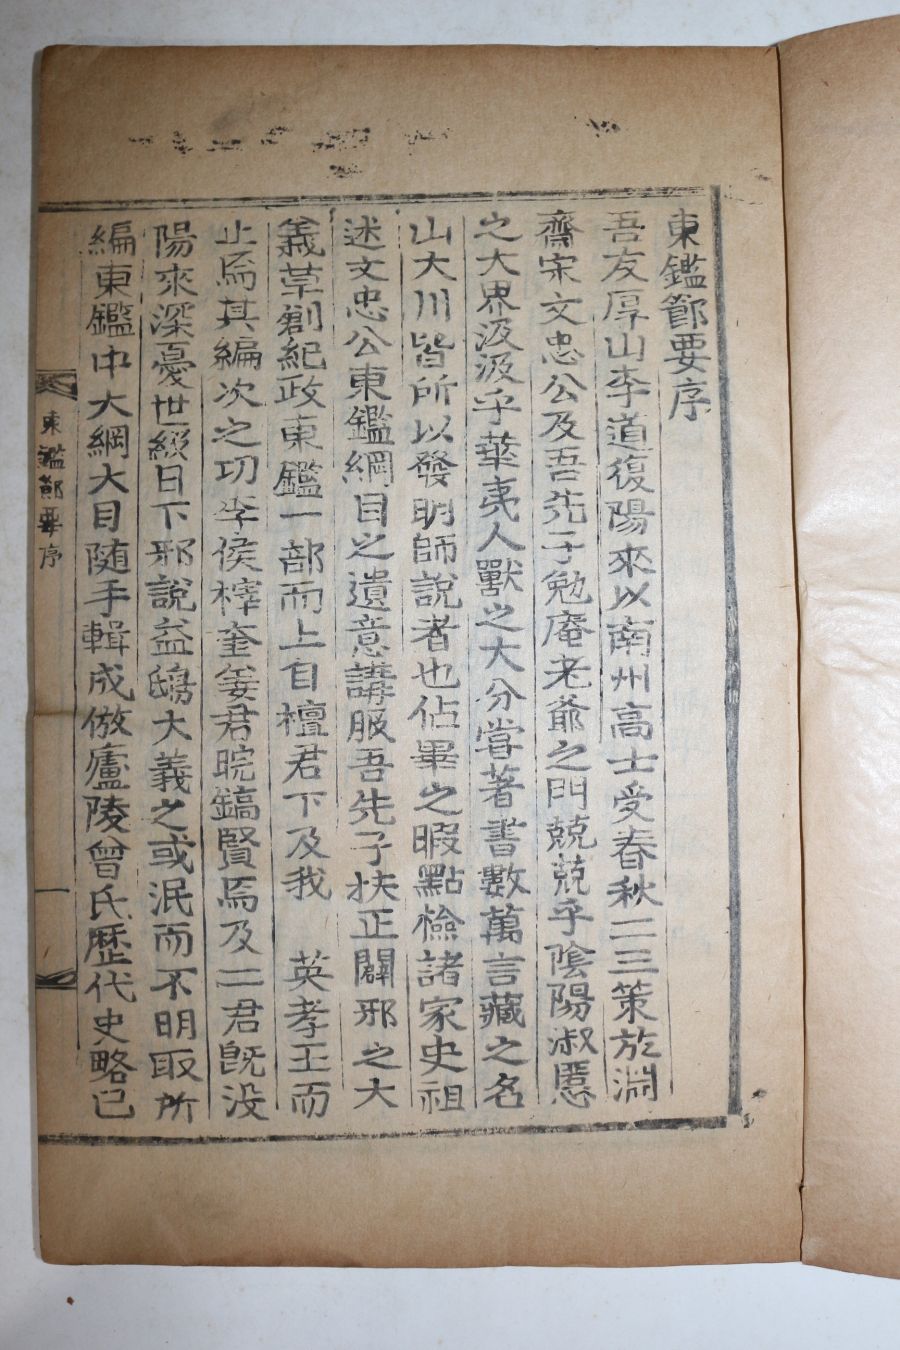 東鑑節要序
吾友厚山李道復陽來以南州高士受春秋二三策於淵
齋宋文忠公及吾先子勉庵老爺之門兢兢乎陰陽淑慝
之大界汲汲乎華夷人獸之大分嘗著書數萬言藏之名
山大川皆所以發明師說者也佔畢之暇點檢諸家史祖
述文忠公東鑑綱目之遺意講服吾先子扶正闢邪之大
義草創紀政東鑑一部而上自檀君下及我 英孝王而
止焉其編次之切李侯梓奎姜君晥鎬賢焉及二君旣沒
陽來深憂世級日下邪說益鴟大義之或泯而不明取所
編東鑑中大綱大目随手輯成倣廬陵曾氏歷代史略已
東鑑節要序
一